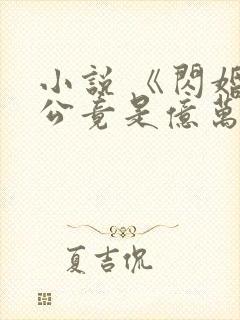 小説《閃婚
公竟是億萬
夏吉侃